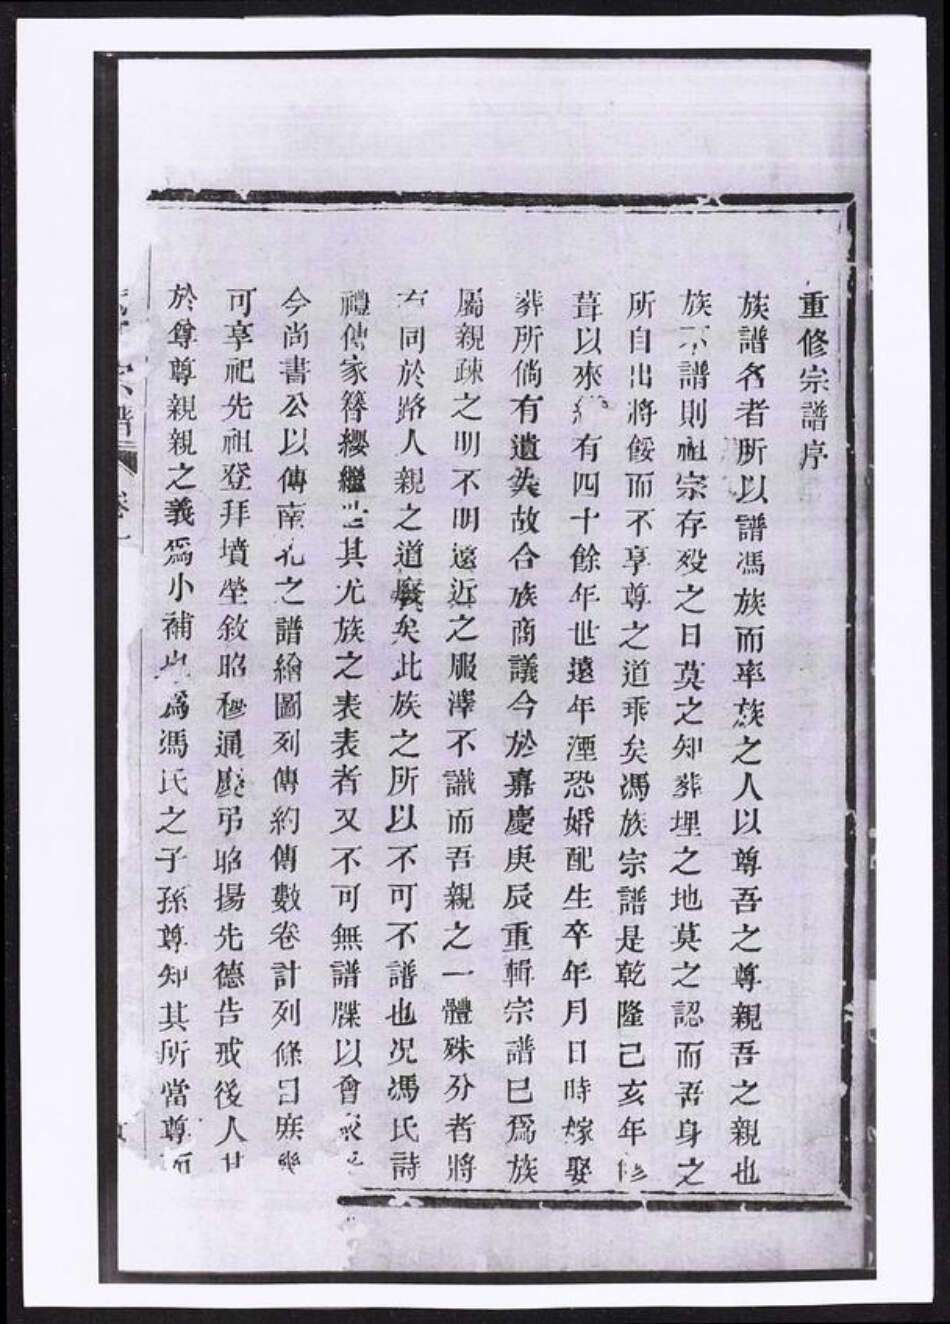 重修宗譜序
族譜名者所以譜馮族而率族之人以尊吾之尊親吾之親也
族不譜則祖宗存歿之日莫之知葬埋之地莫之認而吾身之
所自出將餒而不享尊之道乖矣馮族宗譜是乾隆己亥年修
葺以來 有四十餘年世遠年湮恐婚配生卒年月日時嫁娶
葬所倘有遺失故合族商議今於嘉慶庚辰重輯宗譜巳爲族
屬親疎之明不明遠近之服澤不識而吾親之一體殊分者將
有同於路人親之道廢矣此族之所以不可不譜也況馮氏詩
禮傳家簪纓繼世其尤族之表表者又不可無譜牒以會
今尚書公以傳南北之譜繪圖列傳約傳數卷計列條目庶幾
可享祀先祖登拜墳塋敘昭穆通慶弔昭揚先德告戒後人其
於尊尊親親之義爲小補 爲馮氏之子孫尊知其所當尊而
宗譜 卷一